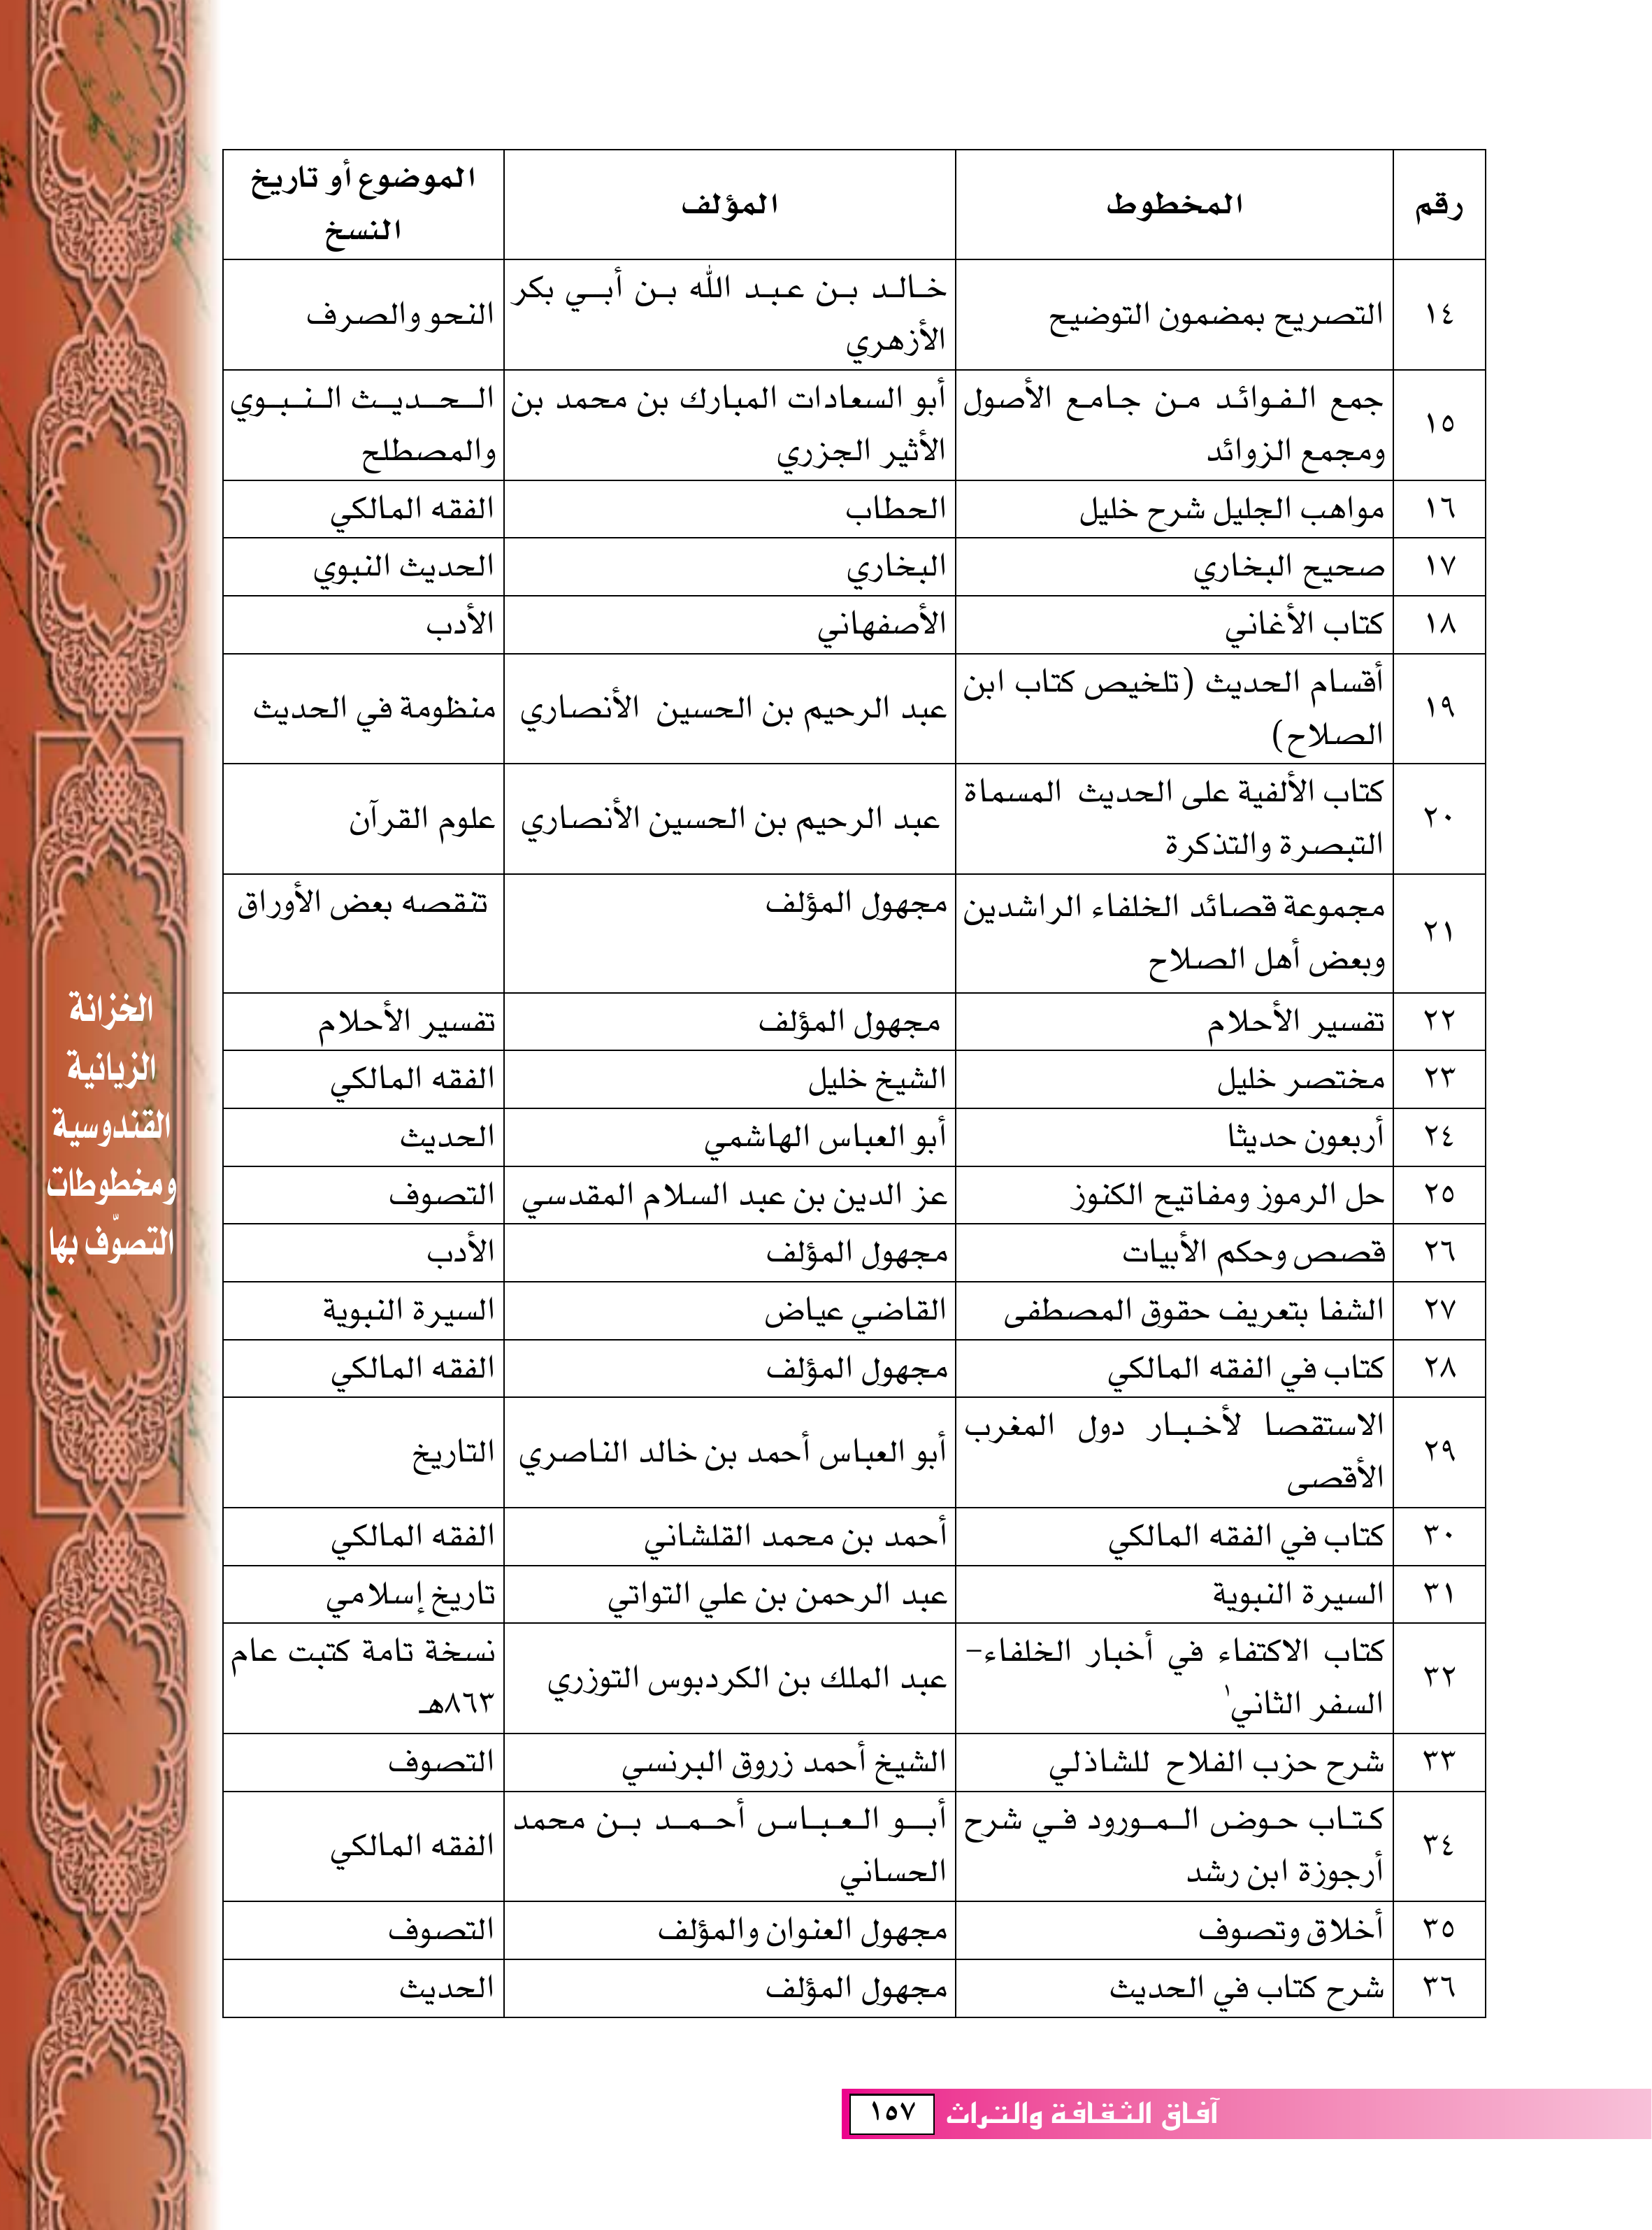 رقم
المخطوط
المؤلف
الموضوع أو تاريخ
النسخ
١٤
التصريح بمضمون التوضيح
خالد بن عبد الله بن أبي بكر
الأزهري
النحو والصرف
١٥
جمع الفوائد من جامع الأصول
ومجمع الزوائد
أبو السعادات المبارك بن محمد بن
الأثير الجزري
الحديث النبوي
والمصطلح
١٦
مواهب الجليل شرح خليل
الحطاب
الفقه المالكي
١٧
صحيح البخاري
البخاري
الحديث النبوي
١٨
كتاب الأغاني
الأصفهاني
الأدب
١٩
أقسام الحديث (تلخيص كتاب ابن
الصلاح)
عبد الرحيم بن الحسين الأنصاري
منظومة في الحديث
٢٠
كتاب الألفية على الحديث المسماة
التبصرة والتذكرة
عبد الرحيم بن الحسين الأنصاري
علوم القرآن
٢١
مجموعة قصائد الخلفاء الراشدين
وبعض أهل الصلاح
مجهول المؤلف
تنقصه بعض الأوراق
٢٢
تفسير الأحلام
مجهول المؤلف
تفسير الأحلام
٢٣
مختصر خليل
الشيخ خليل
الفقه المالكي
٢٤
أربعون حديثا
أبو العباس الهاشمي
الحديث
٢٥
حل الرموز ومفاتيح الكنوز
عز الدين بن عبد السلام المقدسي
التصوف
٢٦
قصص وحكم الأبيات
مجهول المؤلف
الأدب
٢٧
الشفا بتعريف حقوق المصطفى
القاضي عياض
السيرة النبوية
٢٨
كتاب في الفقه المالكي
مجهول المؤلف
الفقه المالكي
٢٩
الاستقصا لأخبار دول المغرب
الأقصى
أبو العباس أحمد بن خالد الناصري
التاريخ
٣٠
كتاب في الفقه المالكي
أحمد بن محمد القلشاني
الفقه المالكي
٣١
السيرة النبوية
عبد الرحمن بن علي التواتي
تاريخ إسلامي
٣٢
كتاب الاكتفاء في أخبار الخلفاء-
السفر الثاني١
عبد الملك بن الكردبوس التوزري
نسخة تامة كتبت عام
٨٦٣هـ
٣٣
شرح حزب الفلاح للشاذلي
الشيخ أحمد زروق البرنسي
التصوف
٣٤
كتاب حوض المورود في شرح
أرجوزة ابن رشد
أبو العباس أحمد بن محمد
الحساني
الفقه المالكي
٣٥
أخلاق وتصوف
مجهول العنوان والمؤلف
التصوف
٣٦
شرح كتاب في الحديث
مجهول المؤلف
الحديث
الخزانة
الزيانية
القندوسية
ومخطوطات
التصوّف بها
آفاق الثقافة والتراث ١٥٧